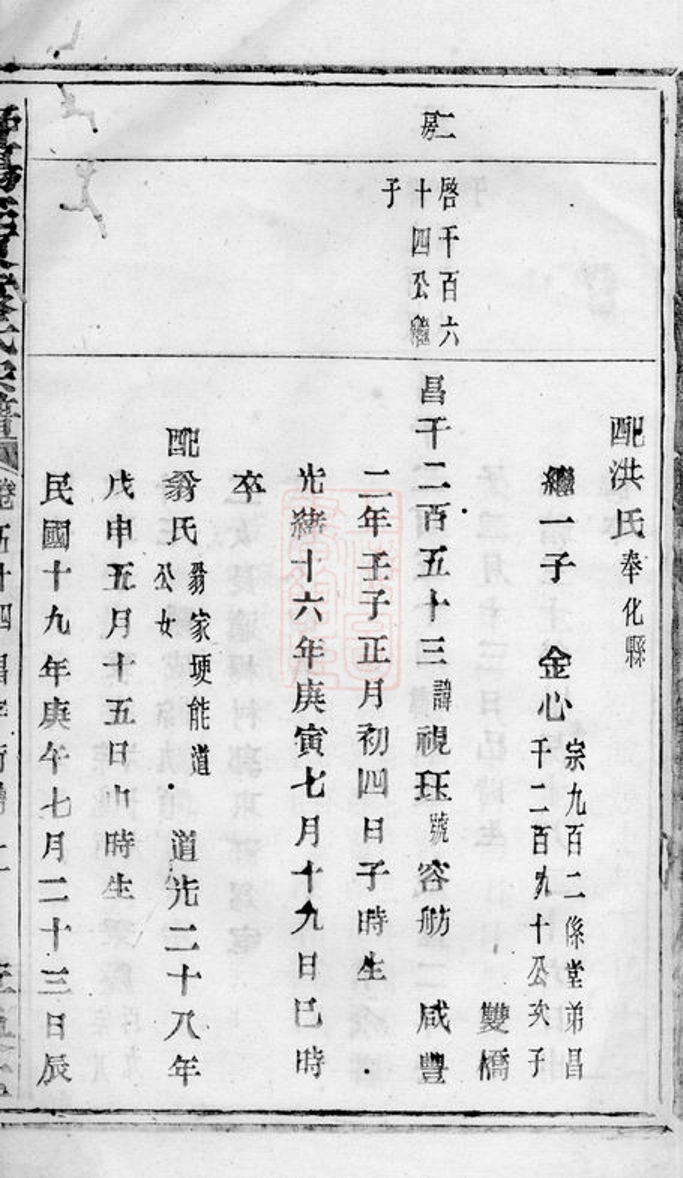 二
房
啓千百六
十四公繼
子
配洪氏奉化縣
繼一子 金心宗九百二係堂弟昌
千二百九十公次子
雙橋
昌千二百五十三諱視珏號容舫 咸豐
二年壬子正月初四日子時生
光緒十六年庚寅七月十九日巳時
卒
配翁氏翁家埂能道
公女 道光二十八年
戊申五月十五日 時生
民國十九年庚午七月二十三日辰
氏宗譜
卷五十四